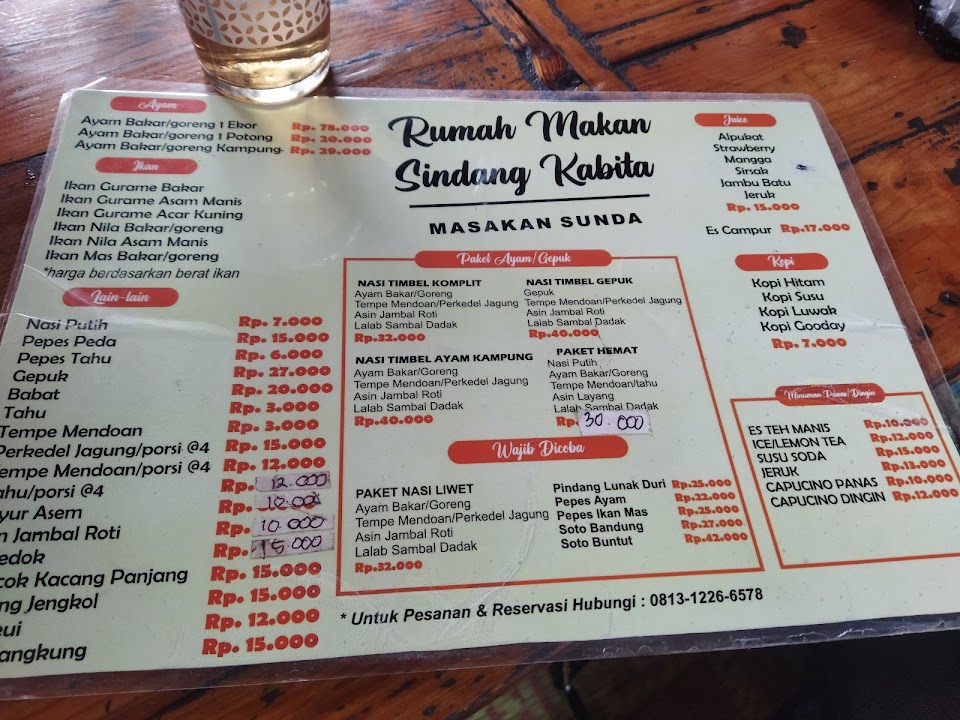 Ayam
Ayam Bakar/goreng 1 Ekor Rp. 78.000
Ayam Bakar/goreng 1 Potong Rp. 20.000
Ayam Bakar/goreng Kampung Rp. 29.000
Ikan
Ikan Gurame Bakar
Ikan Gurame Asam Manis
Ikan Gurame Acar Kuning
Ikan Nila Bakar/goreng
Ikan Nila Asam Manis
Ikan Mas Bakar/goreng
*harga berdasarkan berat ikan
Lain-lain
Nasi Putih Rp. 7.000
Pepes Peda Rp. 15.000
Pepes Tahu Rp. 6.000
Gepuk Rp. 27.000
Babat Rp. 20.000
Tahu Rp. 3.000
Tempe Mendoan Rp. 3.000
Perkedel Jagung/porsi @4 Rp. 15.000
Tempe Mendoan/porsi @4 Rp. 12.000
ahu/porsi @4 Rp. 12.000
yur Asem Rp. 10.000
n Jambal Roti Rp. 10.000
edok Rp. 15.000
cok Kacang Panjang Rp. 15.000
ng Jengkol Rp. 15.000
eui Rp. 12.000
angkung Rp. 15.000
Rumah Makan
Sindang Kabita
MASAKAN SUNDA
Paket Ayam/Gepuk
NASI TIMBEL KOMPLIT
Ayam Bakar/Goreng
Tempe Mendoan/Perkedel Jagung
Asin Jambal Roti
Lalab Sambal Dadak
Rp.32.000
NASI TIMBEL GEPUK
Gepuk
Tempe Mendoan/Perkedel Jagung
Asin Jambal Roti
Lalab Sambal Dadak
Rp.40.000
NASI TIMBEL AYAM KAMPUNG
Ayam Bakar/Goreng
Tempe Mendoan/Perkedel Jagung
Asin Jambal Roti
Lalab Sambal Dadak
Rp.40.000
PAKET HEMAT
Nasi Putih
Ayam Bakar/Goreng
Tempe Mendoan/tahu
Asin Layang
Lalab Sambal Dadak
Rp. 30.000
Wajib Dicoba
PAKET NASI LIWET
Ayam Bakar/Goreng
Tempe Mendoan/Perkedel Jagung
Asin Jambal Roti
Lalab Sambal Dadak
Rp.32.000
Pindang Lunak Duri Rp.25.000
Pepes Ayam Rp.22.000
Pepes Ikan Mas Rp.25.000
Soto Bandung Rp.27.000
Soto Buntut Rp.42.000
* Untuk Pesanan & Reservasi Hubungi : 0813-1226-6578
Juice
Alpukat
Strawberry
Mangga
Sirsak
Jambu Batu
Jeruk
Rp. 15.000
Es Campur Rp.17.000
Kopi
Kopi Hitam
Kopi Susu
Kopi Luwak
Kopi Gooday
Rp. 7.000
Minuman Panas/Dingin
ES TEH MANIS Rp.10.000
ICE/LEMON TEA Rp.12.000
SUSU SODA Rp.15.000
JERUK Rp.13.000
CAPUCINO PANAS Rp.10.000
CAPUCINO DINGIN Rp.12.000